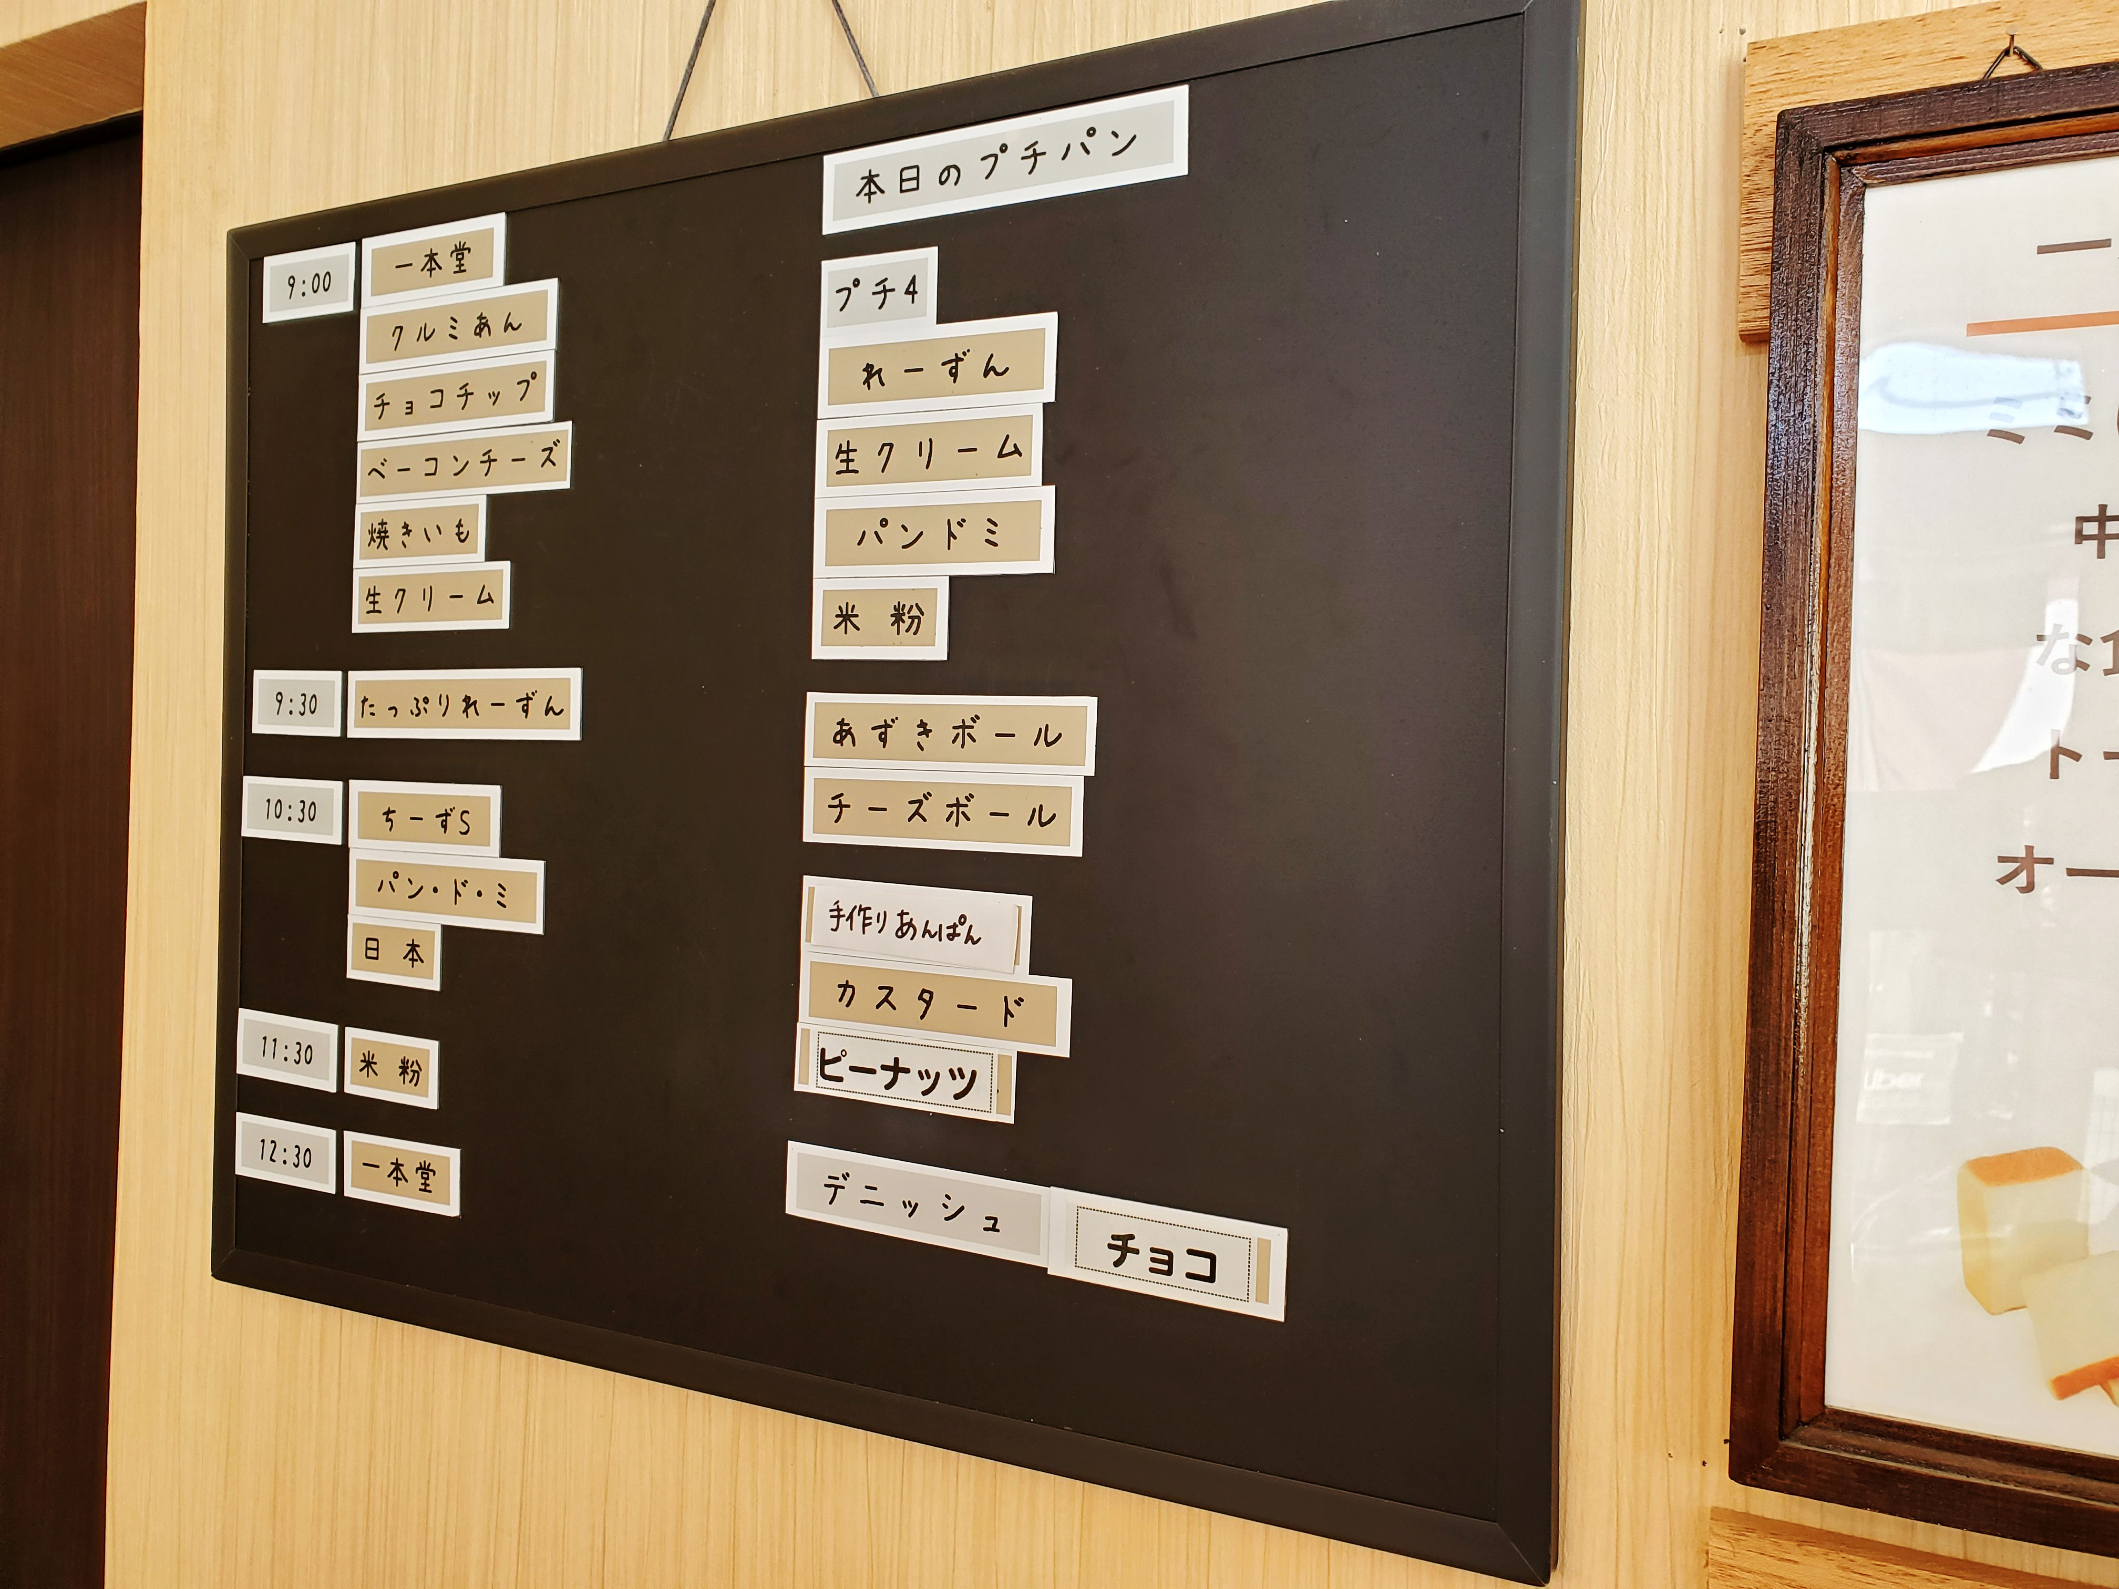 9:00 一本堂
クルミあん
チョコチップ
ベーコンチーズ
焼きいも
生クリーム
9:30 たっぷりれーずん
10:30 ちーずS
パン・ド・ミ
日本
11:30 米粉
12:30 一本堂
本日のプチパン
プチ4
れーずん
生クリーム
パンドミ
米粉
あずきボール
チーズボール
手作りあんぱん
カスタード
ピーナッツ
デニッシュ チョコ
一
ミミ
中
な
ト
オー
Uber